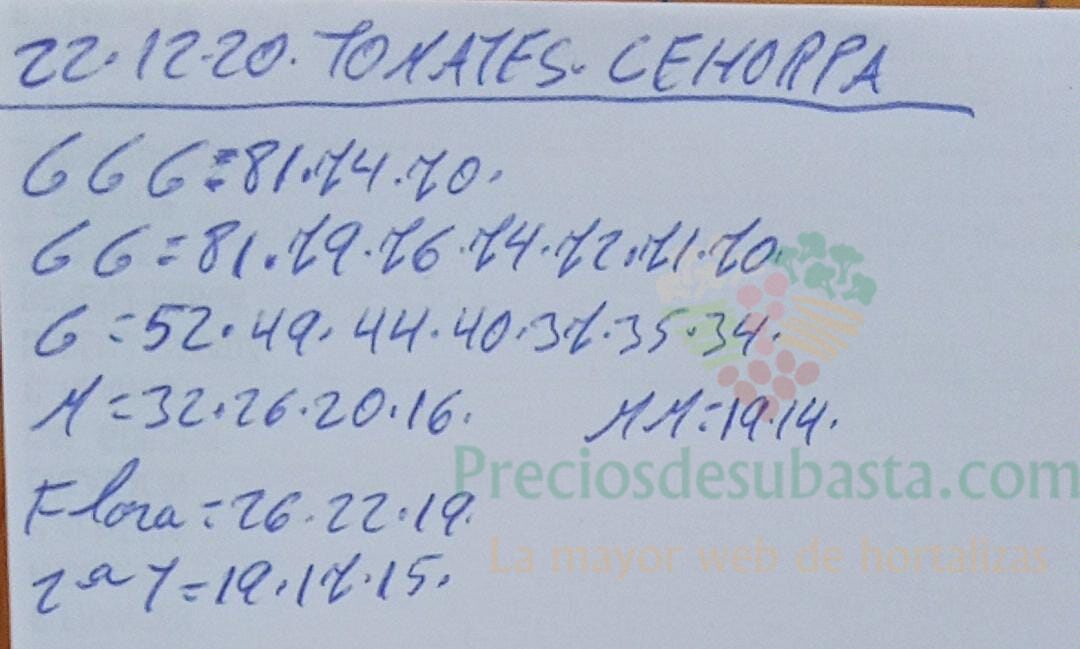 22.12.20. TOMATES. CEHORPA
GGG=81.74.70.
GG=81.79.76.74.72.71.70.
G=52.49.44.40.37.35.34.
M=32.26.20.16. MM=19.14.
Flora=26.22.19.
2ª7=19.17.15.
Preciosdesubasta.com
La mayor web de hortalizas